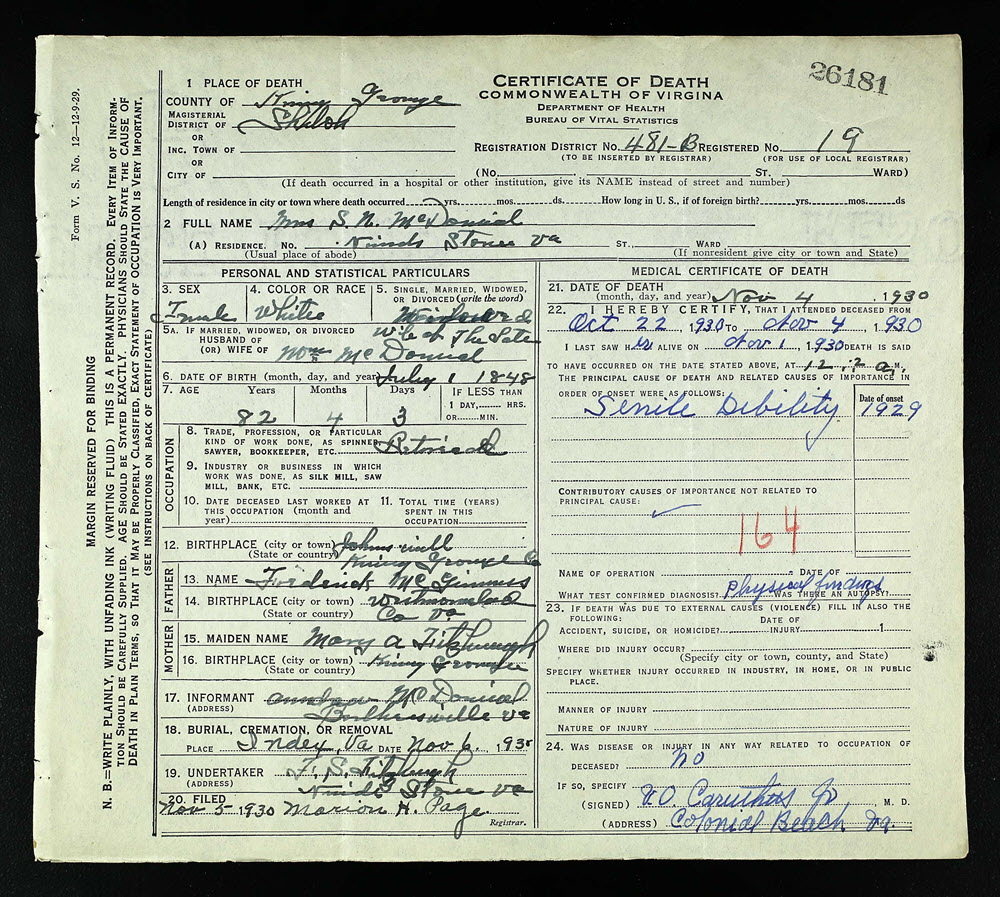 26181
Form V. S. No. 12—12-9-29.
MARGIN RESERVED FOR BINDING
N. B.=WRITE PLAINLY, WITH UNFADING INK (WRITING FLUID) THIS IS A PERMANENT RECORD. EVERY ITEM OF INFORM-
TION SHOULD BE CAREFULLY SUPPLIED. AGE SHOULD BE STATED EXACTLY. PHYSICIANS SHOULD STATE THE CAUSE OF
DEATH IN PLAIN TERMS, SO THAT IT MAY BE PROPERLY CLASSIFIED. EXACT STATEMENT OF OCCUPATION IS VERY IMPORTANT.
(SEE INSTRUCTIONS ON BACK OF CERTIFICATE)
CERTIFICATE OF DEATH
COMMONWEALTH OF VIRGINA
DEPARTMENT OF HEALTH
BUREAU OF VITAL STATISTICS
1 PLACE OF DEATH
COUNTY OF King George
MAGISTERIAL
DISTRICT OF Shiloh
OR
INC. TOWN OF
OR
CITY OF
REGISTRATION DISTRICT NO. 481-B REGISTERED NO. 19
(TO BE INSERTED BY REGISTRAR) (FOR USE OF LOCAL REGISTRAR)
(NO. ST. WARD)
(If death occurred in a hospital or other institution, give its NAME instead of street and number)
Length of residence in city or town where death occurred yrs. mos. ds. How long in U. S., if of foreign birth? yrs. mos. ds
2 FULL NAME Mrs S. N. McDaniel
(A) RESIDENCE. NO. Ninds Store Va ST., WARD
(Usual place of abode) (If nonresident give city or town and State)
PERSONAL AND STATISTICAL PARTICULARS
3. SEX
Female
4. COLOR OR RACE
White
5. SINGLE, MARRIED, WIDOWED,
OR DIVORCED (write the word)
Widowed
5A. IF MARRIED, WIDOWED, OR DIVORCED
HUSBAND OF
(OR) WIFE OF
Wife of The Late
Wm McDaniel
6. DATE OF BIRTH (month, day, and year) July 1 1848
7. AGE Years Months Days IF LESS THAN
1 DAY, HRS.
OR MIN.
82 4 3
OCCUPATION
8. TRADE, PROFESSION, OR PARTICULAR
KIND OF WORK DONE, AS SPINNER,
SAWYER, BOOKKEEPER, ETC. Retired
9. INDUSTRY OR BUSINESS IN WHICH
WORK WAS DONE, AS SILK MILL, SAW
MILL, BANK, ETC.
10. DATE DECEASED LAST WORKED AT
THIS OCCUPATION (month and
year)
11. TOTAL TIME (YEARS)
SPENT IN THIS
OCCUPATION
12. BIRTHPLACE (city or town)
(State or country) King George Co
FATHER
13. NAME Frederick McGinniss
14. BIRTHPLACE (city or town) Westmoreland
(State or country) Co Va
MOTHER
15. MAIDEN NAME Mary A Fitzhugh
16. BIRTHPLACE (city or town) King George
(State or country)
17. INFORMANT McDaniel
(ADDRESS) Va
18. BURIAL, CREMATION, OR REMOVAL
PLACE Index, Va DATE Nov 6, 1930
19. UNDERTAKER F. S. Fitzhugh
(ADDRESS) Ninds Store Va
20. FILED
Nov 5 1930 Marion H. Page
Registrar.
MEDICAL CERTIFICATE OF DEATH
21. DATE OF DEATH
(month, day, and year) Nov 4, 1930
22. I HEREBY CERTIFY, THAT I ATTENDED DECEASED FROM
Oct 22, 1930 TO Nov 4, 1930
I LAST SAW HER ALIVE ON Nov 1, 1930 DEATH IS SAID
TO HAVE OCCURRED ON THE DATE STATED ABOVE, AT 12 a. M.
THE PRINCIPAL CAUSE OF DEATH AND RELATED CAUSES OF IMPORTANCE IN
ORDER OF ONSET WERE AS FOLLOWS: Date of onset
Senile Debility 1929
CONTRIBUTORY CAUSES OF IMPORTANCE NOT RELATED TO
PRINCIPAL CAUSE:
164
NAME OF OPERATION DATE OF
WHAT TEST CONFIRMED DIAGNOSIS? Physical findings WAS THERE AN AUTOPSY?
23. IF DEATH WAS DUE TO EXTERNAL CAUSES (VIOLENCE) FILL IN ALSO THE
FOLLOWING:
ACCIDENT, SUICIDE, OR HOMICIDE? DATE OF
INJURY 1
WHERE DID INJURY OCCUR?
(Specify city or town, county, and Sta
SPECIFY WHETHER INJURY OCCURRED IN INDUSTRY, IN HOME, OR IN PUBLIC
PLACE.
MANNER OF INJURY
NATURE OF INJURY
24. WAS DISEASE OR INJURY IN ANY WAY RELATED TO OCCUPATION OF
DECEASED? No
IF SO, SPECIFY
(SIGNED) Caruthers Jr M. D.
(ADDRESS) Colonial Beach Va.